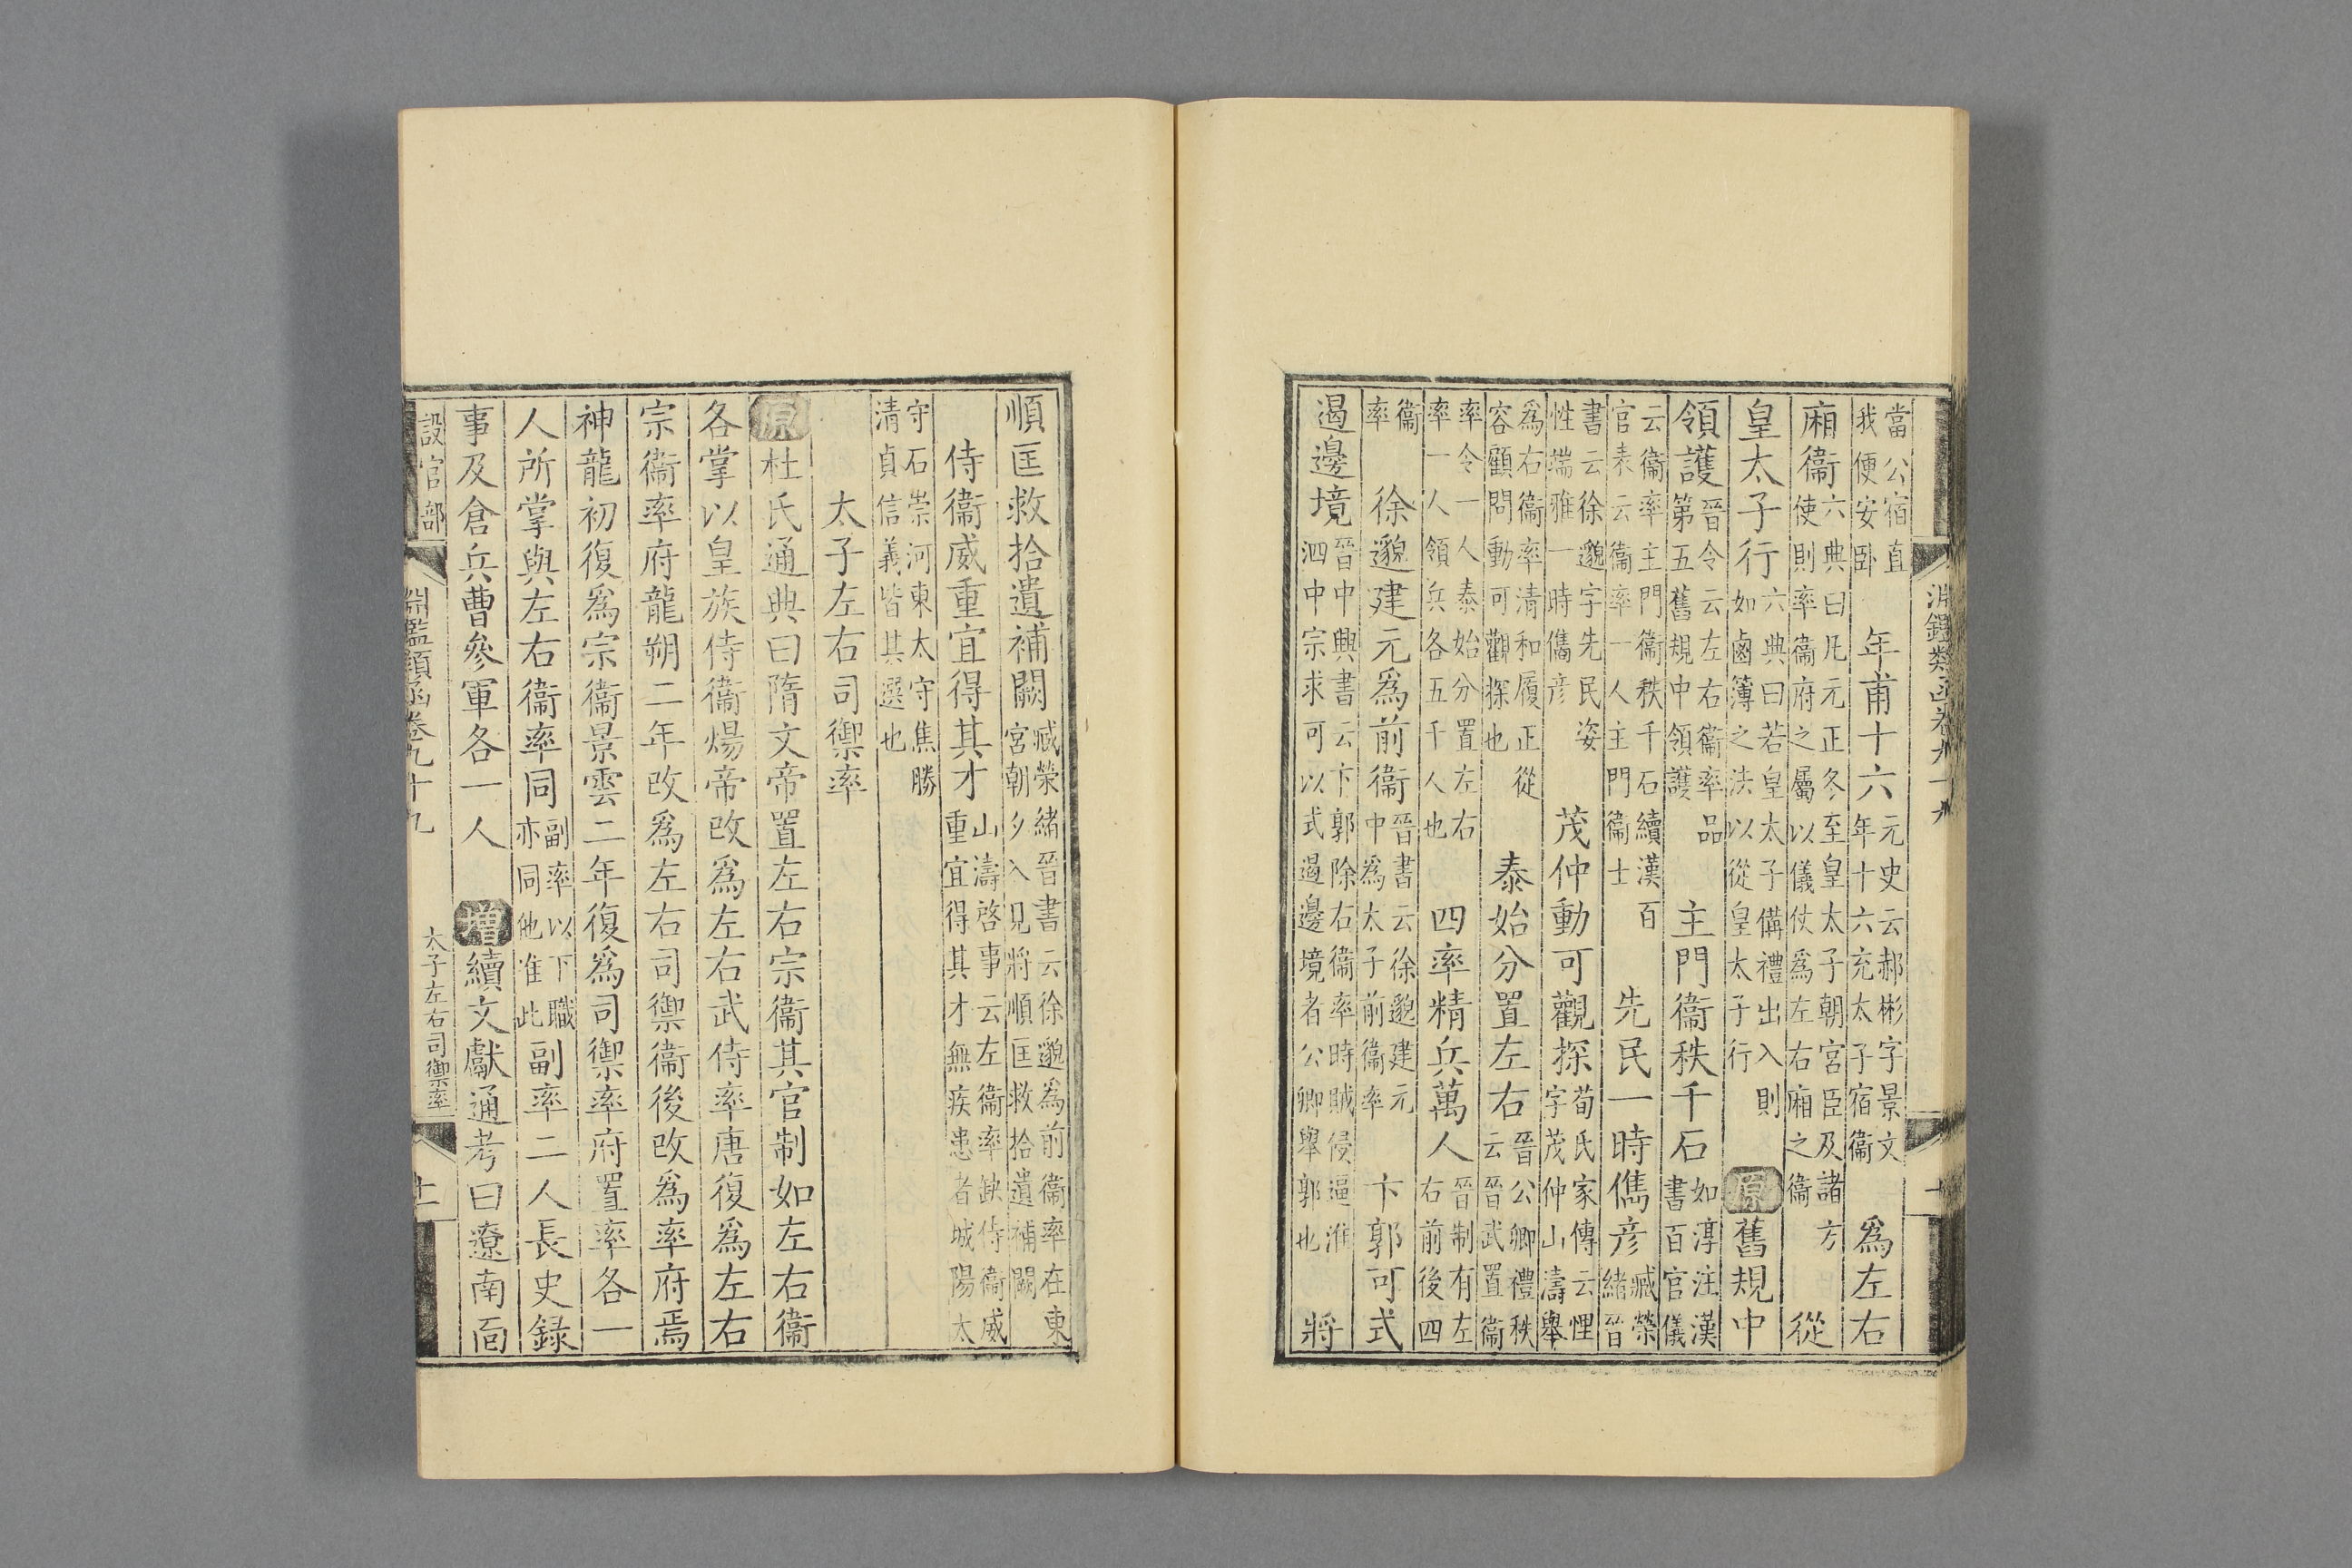 淵鑑類函卷九十九　十
當公宿直我便安卧　年甫十六元史云郝彬字景文年十六充太子宿衞　為左右
廂衞六典曰凡元正冬至皇太子朝宮臣及諸方使則率衞府之屬以儀仗為左右廂之衞　從
皇太子行六典曰若皇太子備禮出入則如鹵簿之法以從皇太子行　原舊規中
領護晉令云左右衞率品第五舊規中領護　主門衞秩千石如淳注漢書百官儀
云衞率主門衞秩千石續漢百官表云衞率一人主門衞士　先民一時儁彥臧榮緒晉
書云徐邈字先民姿性端雅一時儁彥　茂仲動可觀探荀氏家傳云悝字茂仲山濤舉
為右衞率清和履正從容顧問動可觀探也　泰始分置左右晉公卿禮秩云晉武置衞
率令一人泰始分置左右率一人領兵各五千人也　四率精兵萬人晉制有左右前後四
衞率　徐邈建元為前衞晉書云徐邈建元中為太子前衞率　卞郭可式
遏邊境晉中興書云卞郭除右衞率時賊侵逼淮泗中宗求可以式遏邊境者公卿舉郭也　將
順匡救拾遺補闕臧榮緒晉書云徐邈為前衞率在東宮朝夕入見將順匡救拾遺補闕
侍衞威重宜得其才山濤啓事云左衞率缺侍衞威重宜得其才無疾患者城陽太
守石崇河東太守焦勝清貞信義皆其選也
太子左右司禦率
原杜氏通典曰隋文帝置左右宗衞其官制如左右衞
各掌以皇族侍衞煬帝改為左右武侍率唐復為左右
宗衞率府龍朔二年改為左右司禦衞後改為率府焉
神龍初復為宗衞景雲二年復為司禦率府置率各一
人所掌與左右衞率同副率以下職亦同他准此副率二人長史錄
事及倉兵曹參軍各一人　增續文獻通考曰遼南面
設官部　淵鑑類函卷九十九　太子左右司禦率　十一